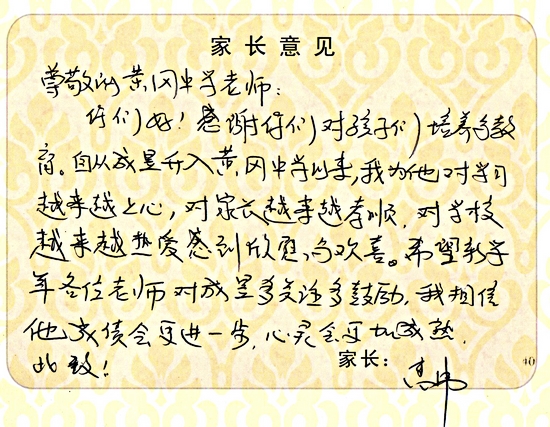 家长意见
尊敬的黄冈中学老师:
你们好!感谢你们对孩子们培养与教
育。自从成星升入黄冈中学以来,我为他对学习
越来越上心,对家长越来越孝顺,对学校
越来越热爱感到欣慰与欢喜。希望新学
年各位老师对成星多关注多鼓励,我相信
他成绩会更进一步,心灵会更加成熟.
此致!
家长:
40